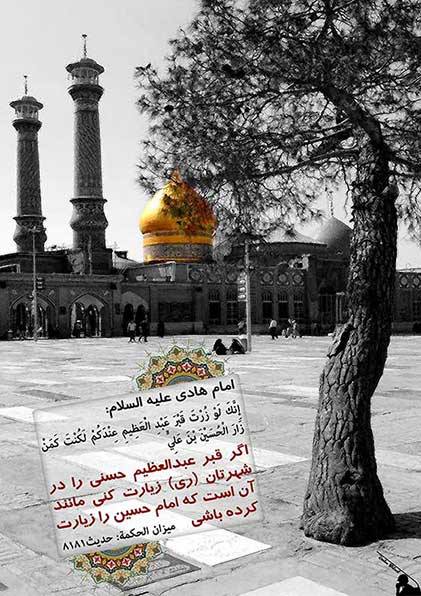 امام هادی علیه السلام:
إِنَّكَ لَوْ زُرْتَ قَبْرَ عَبْدِ الْعَظِیمِ عِنْدَكُمْ لَكُنْتَ كَمَنْ
زَارَ الْحُسَیْنَ بْنَ عَلِيٍّ
اگر قبر عبدالعظیم حسنی را در
شهرتان (ری) زیارت کنی مانند
آن است که امام حسین را زیارت
کرده باشی
میزان الحکمة: حدیث۸۱۸۱